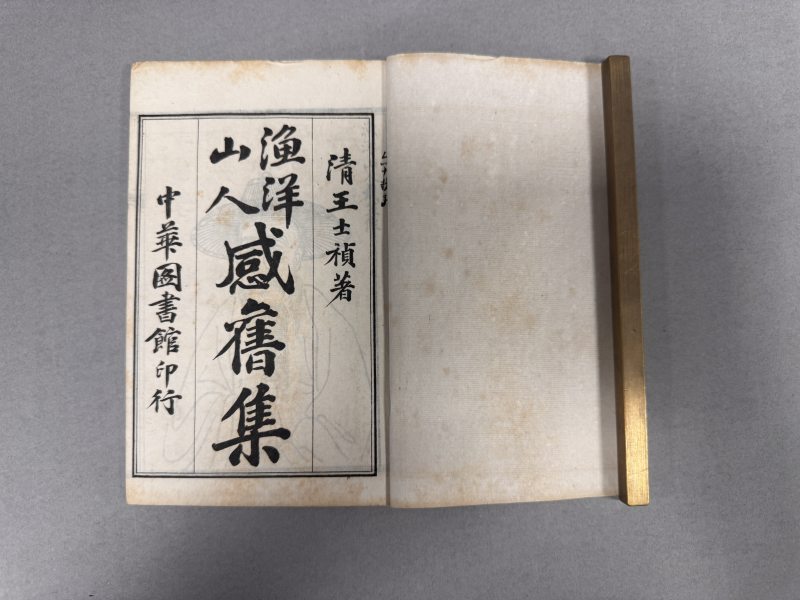 清王士禎著
漁洋山人感舊集
中華圖書館印行